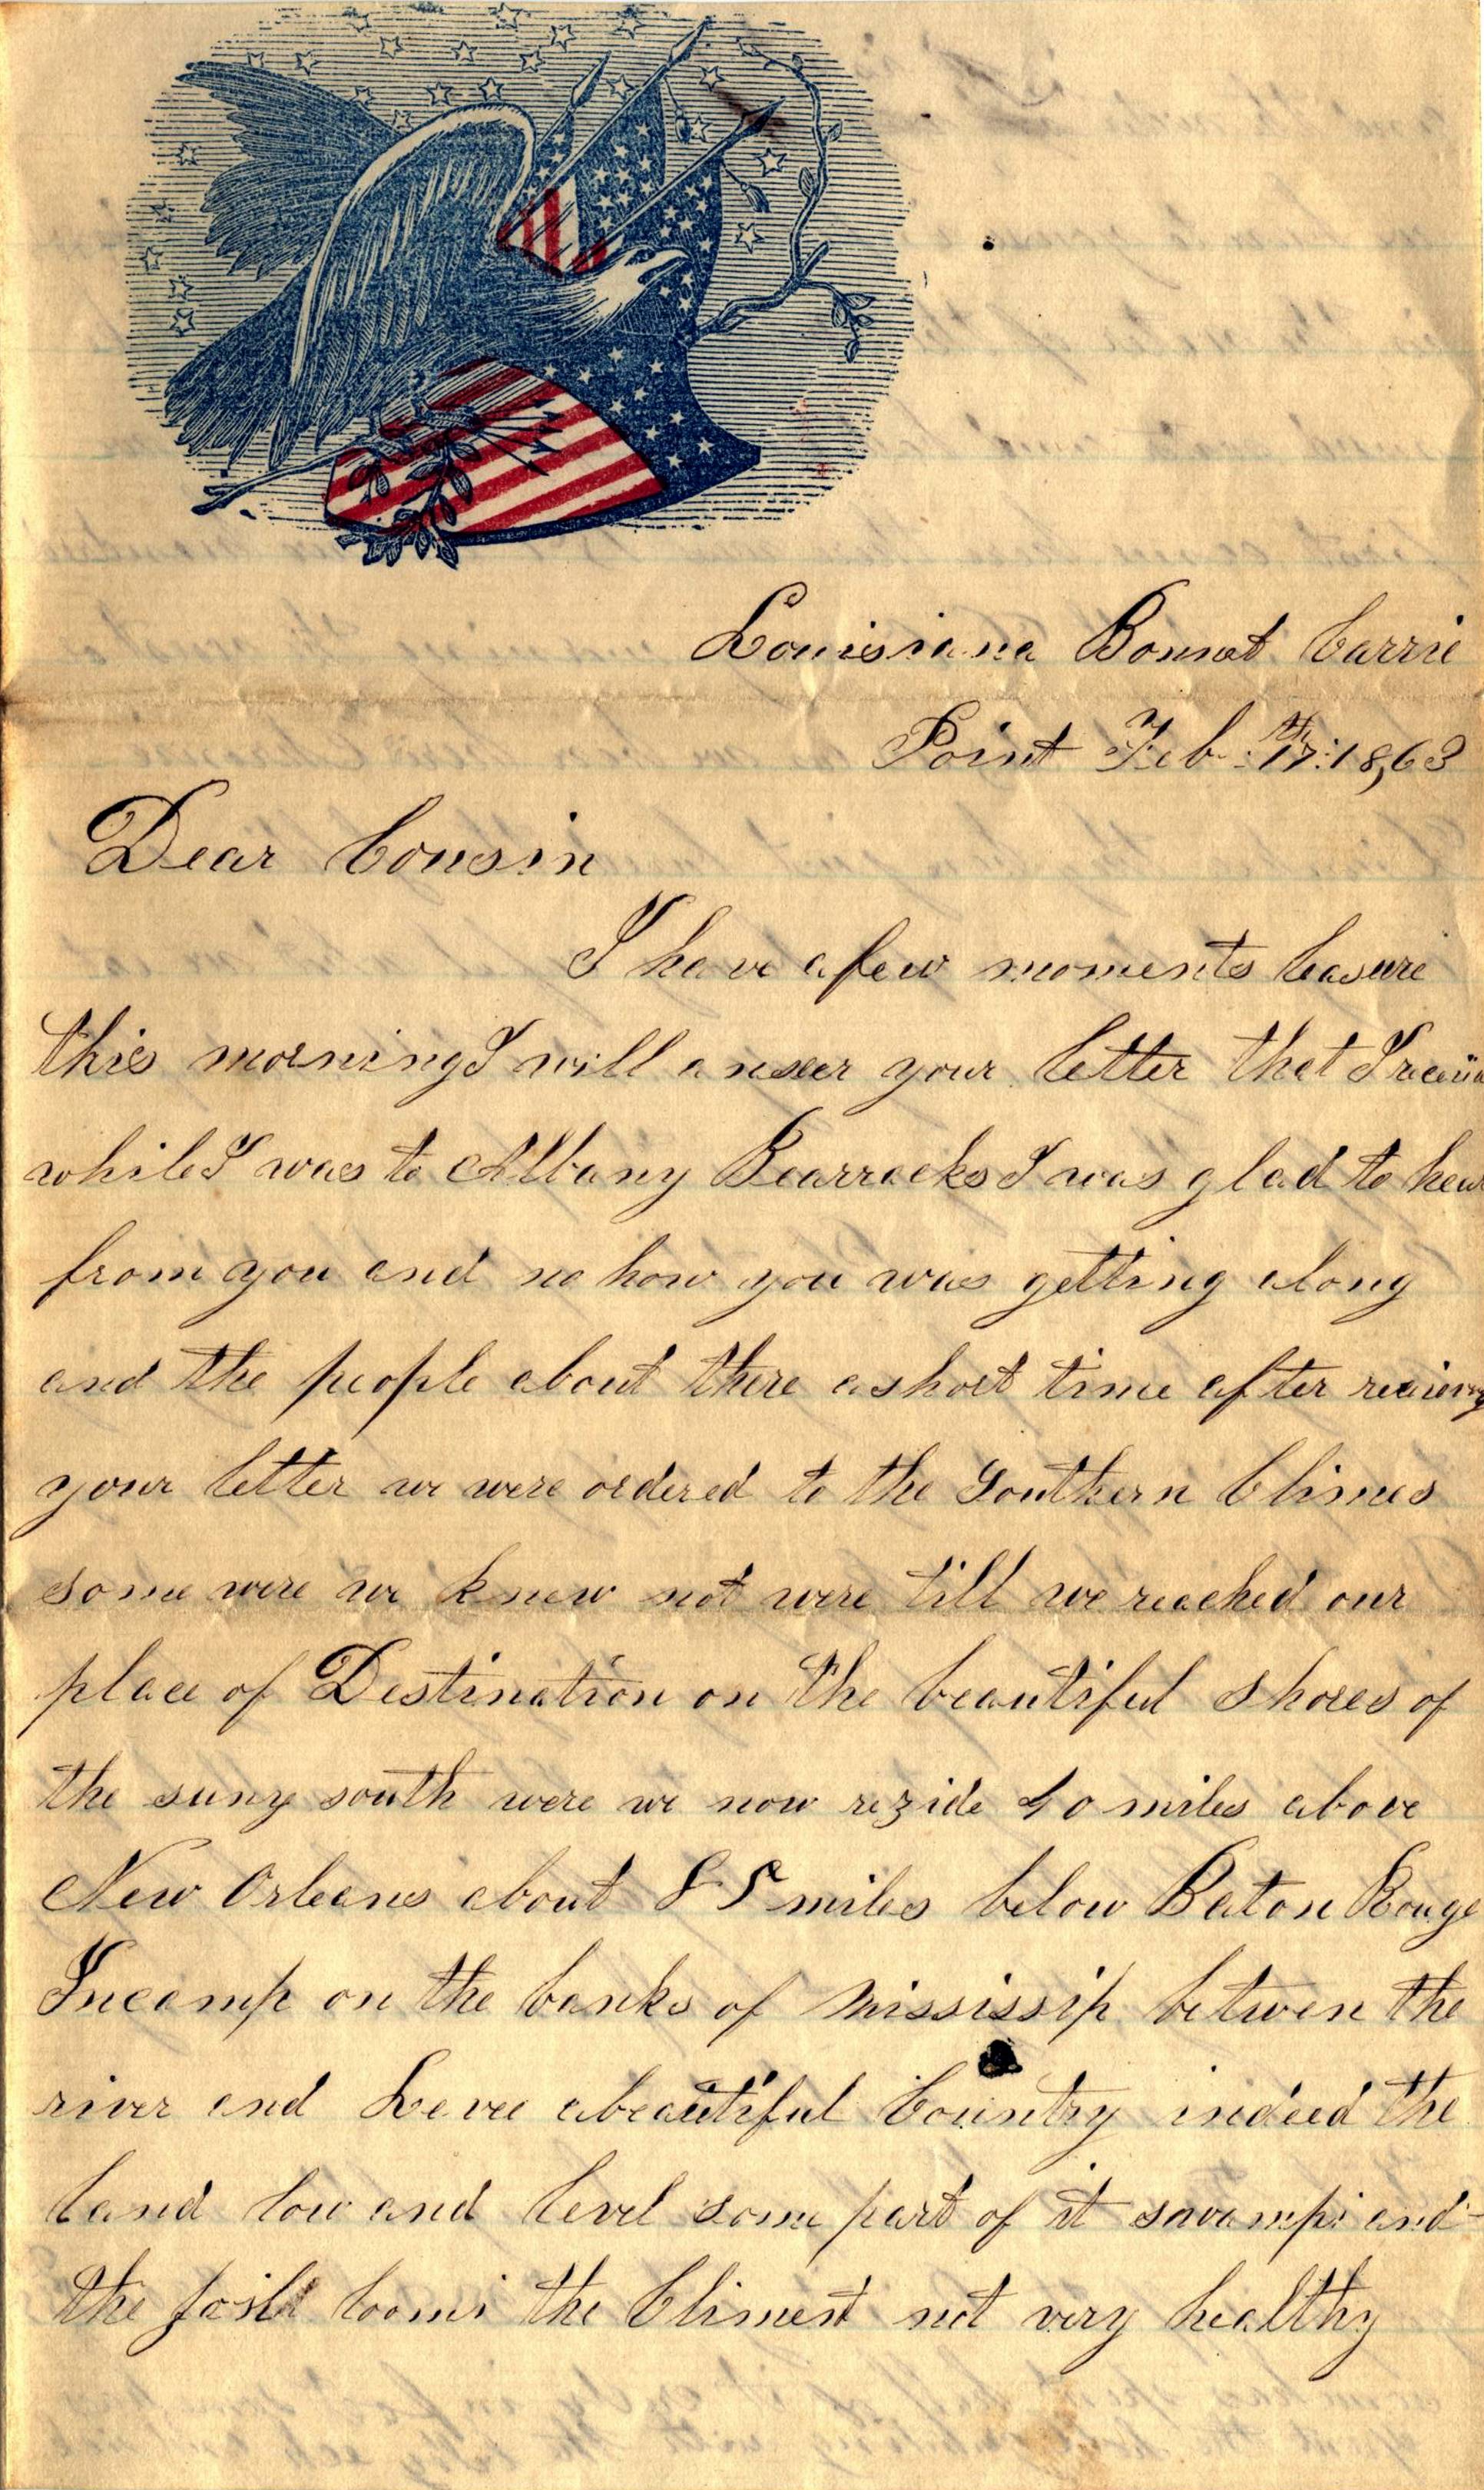 Louisiana Bonnet Carrie
Point Feb. 17th: 18,63
Dear Cousin
I have a few moments leasure
this morning I will anser your letter that I
while I was to Albany Bearracks I was glad to hear
from you and no how you was getting along
and the people about there a short time after
your letter we were ordered to the Southern Climes
some were we knew not were till we reached our
place of Destination on the beautiful shores of
the suny south were we now rezide 40 miles above
New Orleans about 85 miles below Baton Rouge
Incamp on the banks of Mississip betwen the
river and Levee a beautiful Country indeed the
land low and level some part of it swampi and
the soil loomi the Climent not very healthy